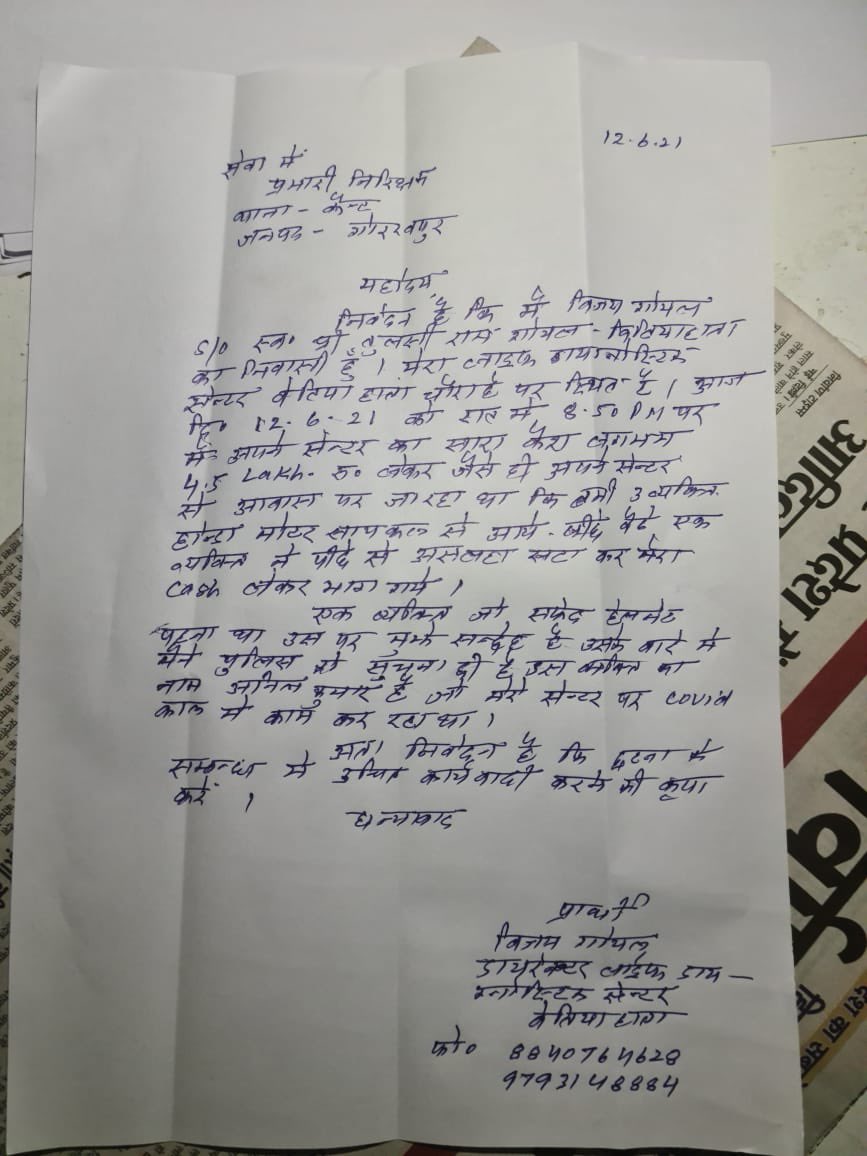 12.6.21
सेवा में
प्रभारी निरिक्षक
थाना - कैन्ट
जनपद - गोरखपुर
महोदय,
निवेदन है कि मैं विजय गोयल
S/o स्व० श्री तुलसी राम गोयल - बेतियाहाता
का निवासी हूँ। मेरा लाइफ डायग्नोस्टिक
सेन्टर बेतिया हाता चौराहे पर स्थित है। आज
दि० 12.6.21 को रात में 8.50 PM पर
मैं अपने सेन्टर का सारा कैश लगभग
4.5 Lakh. रु० लेकर जैसे ही अपने सेन्टर
से आवास पर जा रहा था कि तभी 3 व्यक्ति
होन्डा मोटर सायकल से आये - पीछे बैठे एक
व्यक्ति ने पीछे से असलहा सटा कर मेरा
Cash लेकर भाग गये।
एक व्यक्ति जो सफेद हेलमेट
पहना था उस पर मुझे सन्देह है उसके बारे में
मैंने पुलिस को सुचना दी है उस व्यक्ति का
नाम अनिल कुमार है जो मेरे सेन्टर पर covid
काल में काम कर रहा था।
अतः निवेदन है कि घटना के
सम्बन्ध में उचित कार्यवाही करने की कृपा
करें।
धन्यवाद
प्रार्थी
विजय गोयल
डायरेक्टर लाईफ डाय-
ग्नोस्टिक सेन्टर
बेतिया हाता
फो० 8840764628
9793148884
आदित्य
प्रदेश में